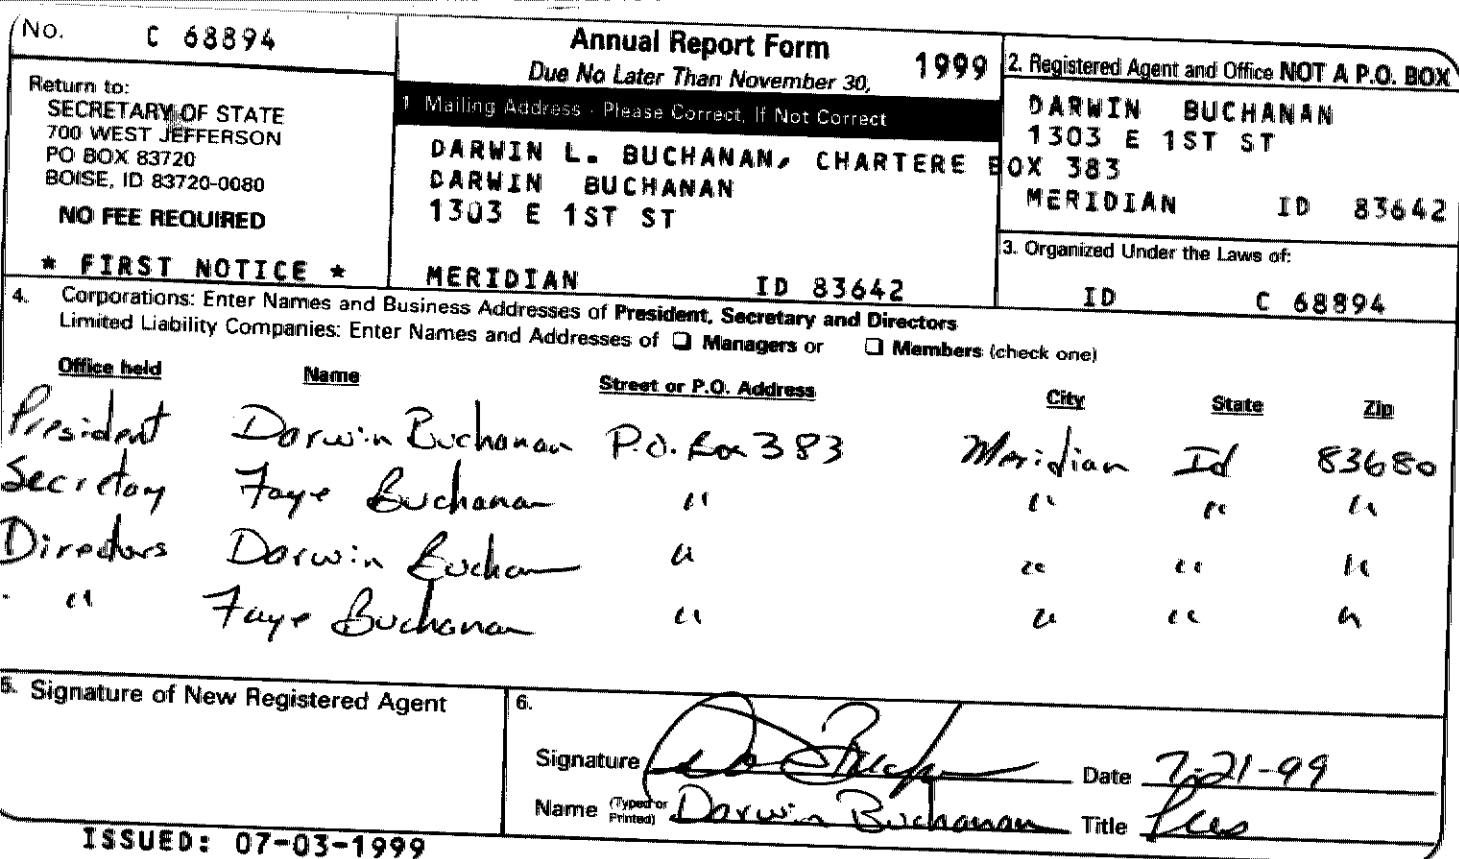 No. C 68894
Return to:
SECRETARY OF STATE
700 WEST JEFFERSON
PO BOX 83720
BOISE, ID 83720-0080
NO FEE REQUIRED
* FIRST NOTICE *
Annual Report Form 1999
Due No Later Than November 30,
1 Mailing Address - Please Correct, If Not Correct
DARWIN L. BUCHANAN, CHARTERE
DARWIN BUCHANAN
1303 E 1ST ST
MERIDIAN ID 83642
2. Registered Agent and Office NOT A P.O. BOX
DARWIN BUCHANAN
1303 E 1ST ST
BOX 383
MERIDIAN ID 83642
3. Organized Under the Laws of:
ID C 68894
4. Corporations: Enter Names and Business Addresses of President, Secretary and Directors
Limited Liability Companies: Enter Names and Addresses of ☐ Managers or ☐ Members (check one)
Office held Name Street or P.O. Address City State Zip
President Darwin Buchanan P.O. Box 383 Meridian Id 83680
Secretary Faye Buchanan " " " "
Directors Darwin Buchanan " " " "
" Faye Buchanan " " " "
5. Signature of New Registered Agent
6.
Signature Date 7-21-99
Name (Typed or Printed) Darwin Buchanan Title Pres
ISSUED: 07-03-1999